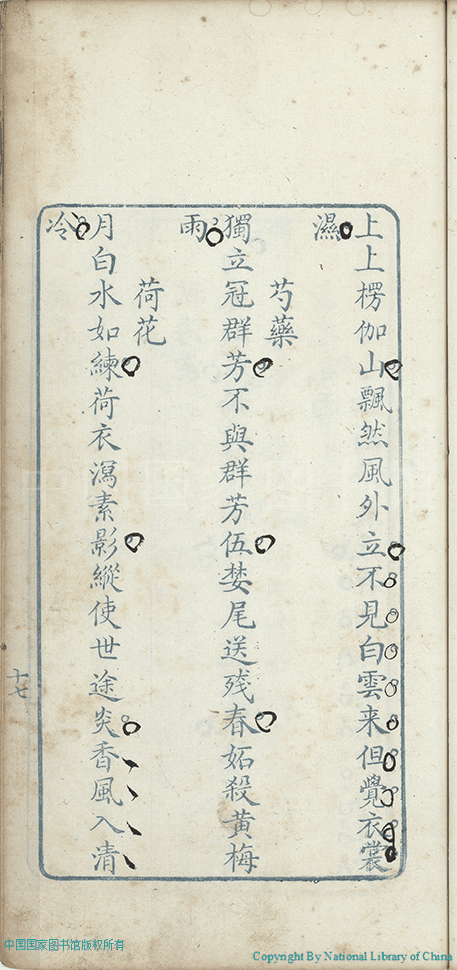 上上楞伽山飄然風外立不見白雲来但覺衣裳
濕
芍藥
獨立冠群芳不與群芳伍婪尾送残春妬殺黃梅
雨
荷花
月白水如練荷衣瀉素影縱使世途炎香風入清
冷
十七
中国国家图书馆版权所有
Copyright By National Library of China